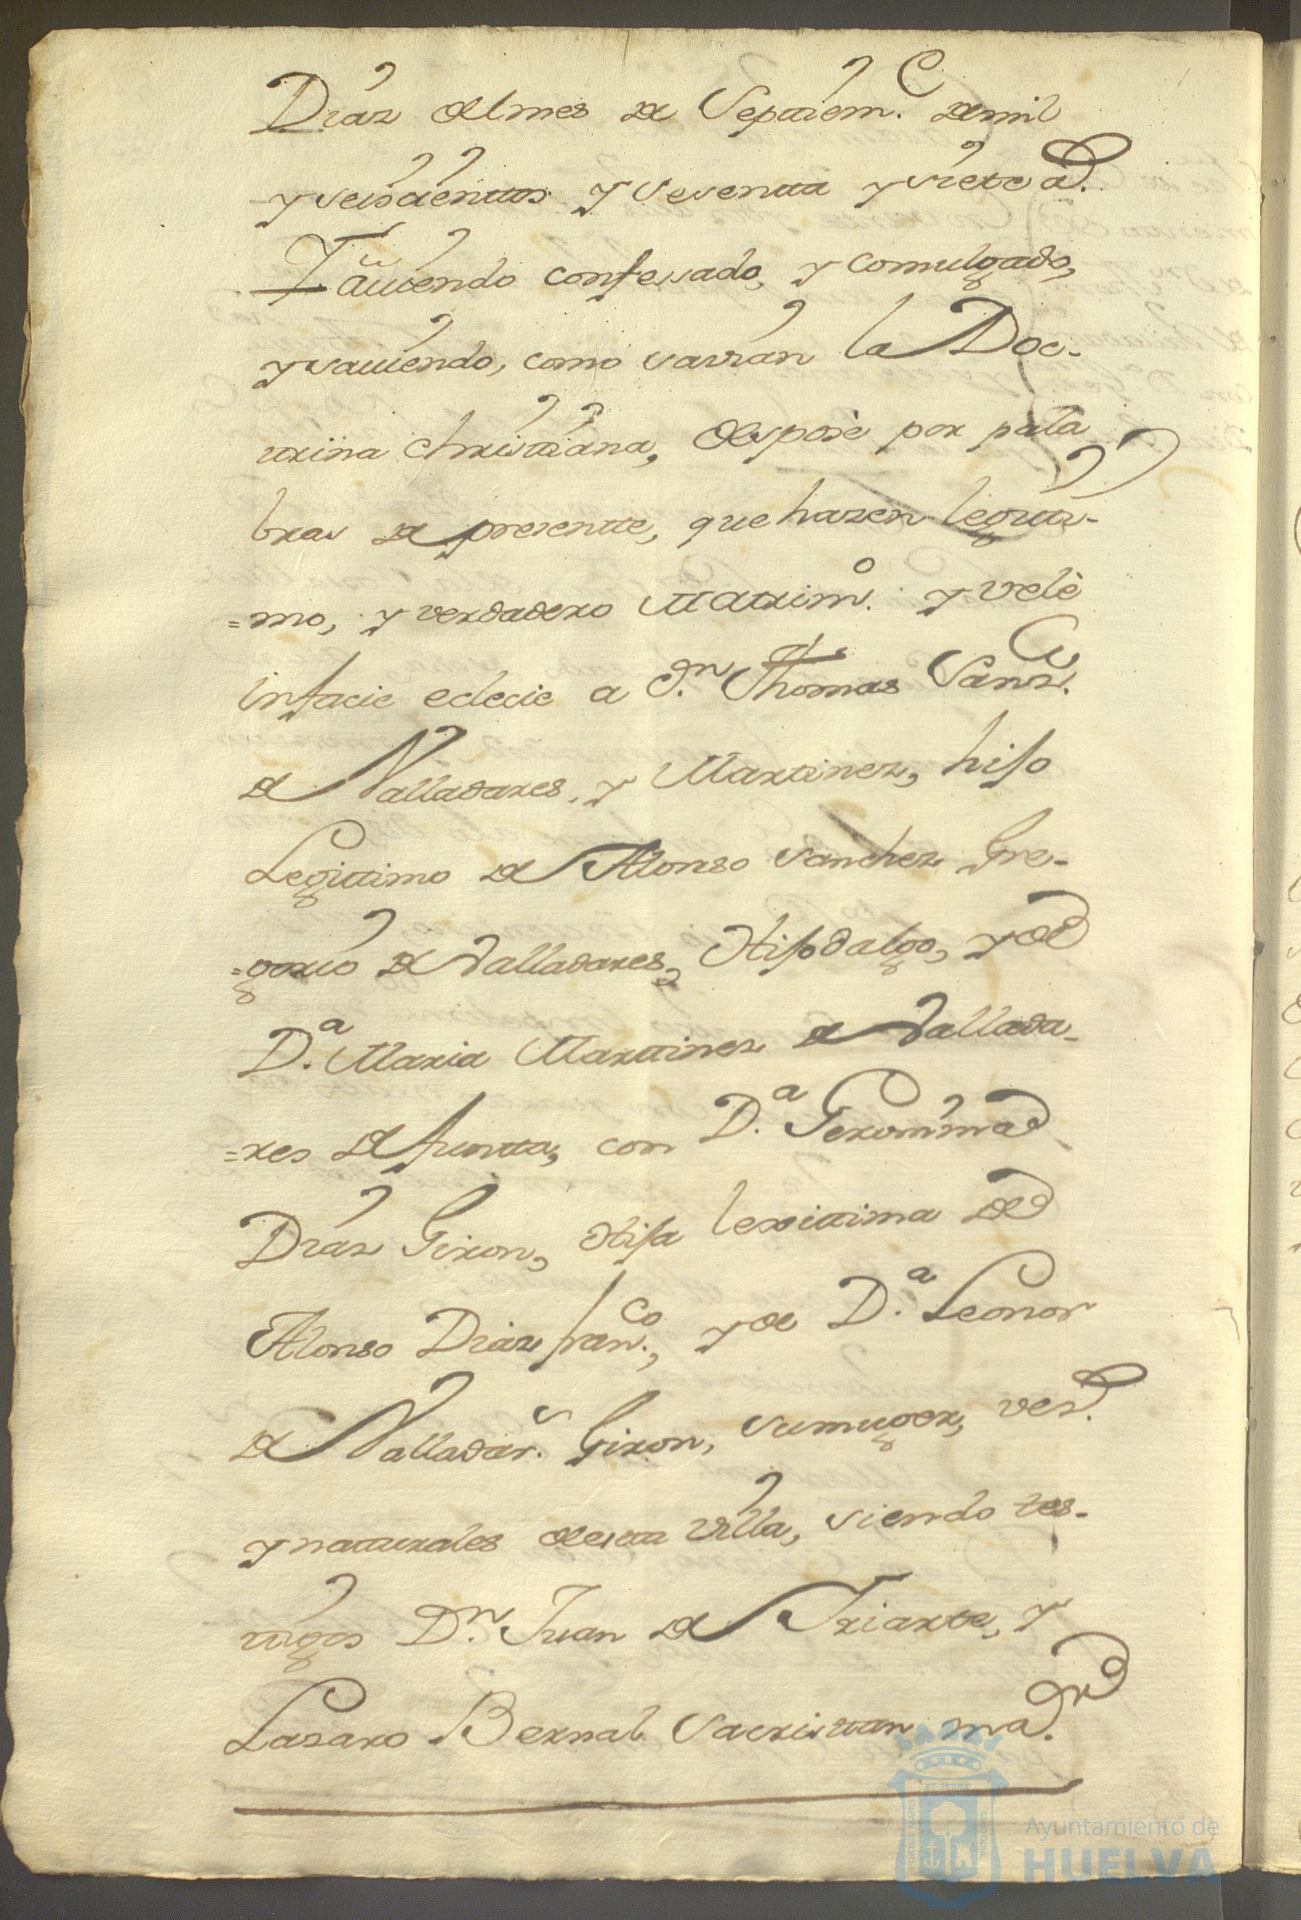 Diaz del mes de Septiem.e de mil
y seiscienttos y sesentta y siete a.s
Hauiendo confesado, y comulgado,
y sauiendo, como savian la Doc-
ttrina christtiana, desposè por pala
bras de presentte, que hazen legitti-
=mo, y verdadero Mattrim.o y velè
in facie eclecie a D.n Thomas Sanz.
de Valladares, y Marttinez, hijo
Legittimo de Alonso Sanchez Gre-
=gorio de Valladares, Hijodalgo, y de
D.a Maria Marttinez de Vallada-
=res difuntta, con D.a Geronima
Diaz Giron, Hija lexittima de
Alonso Diaz fran.co, y de D.a Leonor
de Valladar.s Giron, su muger, vez.s
y natturales destta Villa, siendo tes-
ttigos D.n Juan de Iriarte, y
Lazaro Bernal Sacristtan ma.or
Ayuntamiento de
HUELVA